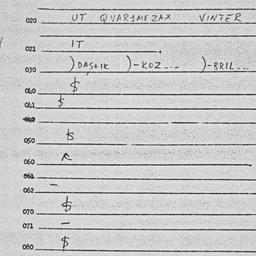 020 UT QVARIMEZAX VINTER
021 IT
030 )DAŞTIK )-KOZ... )-BRIL...
040 $
041 $
050 $
060
061
062 –
070 $
071 –
080 $